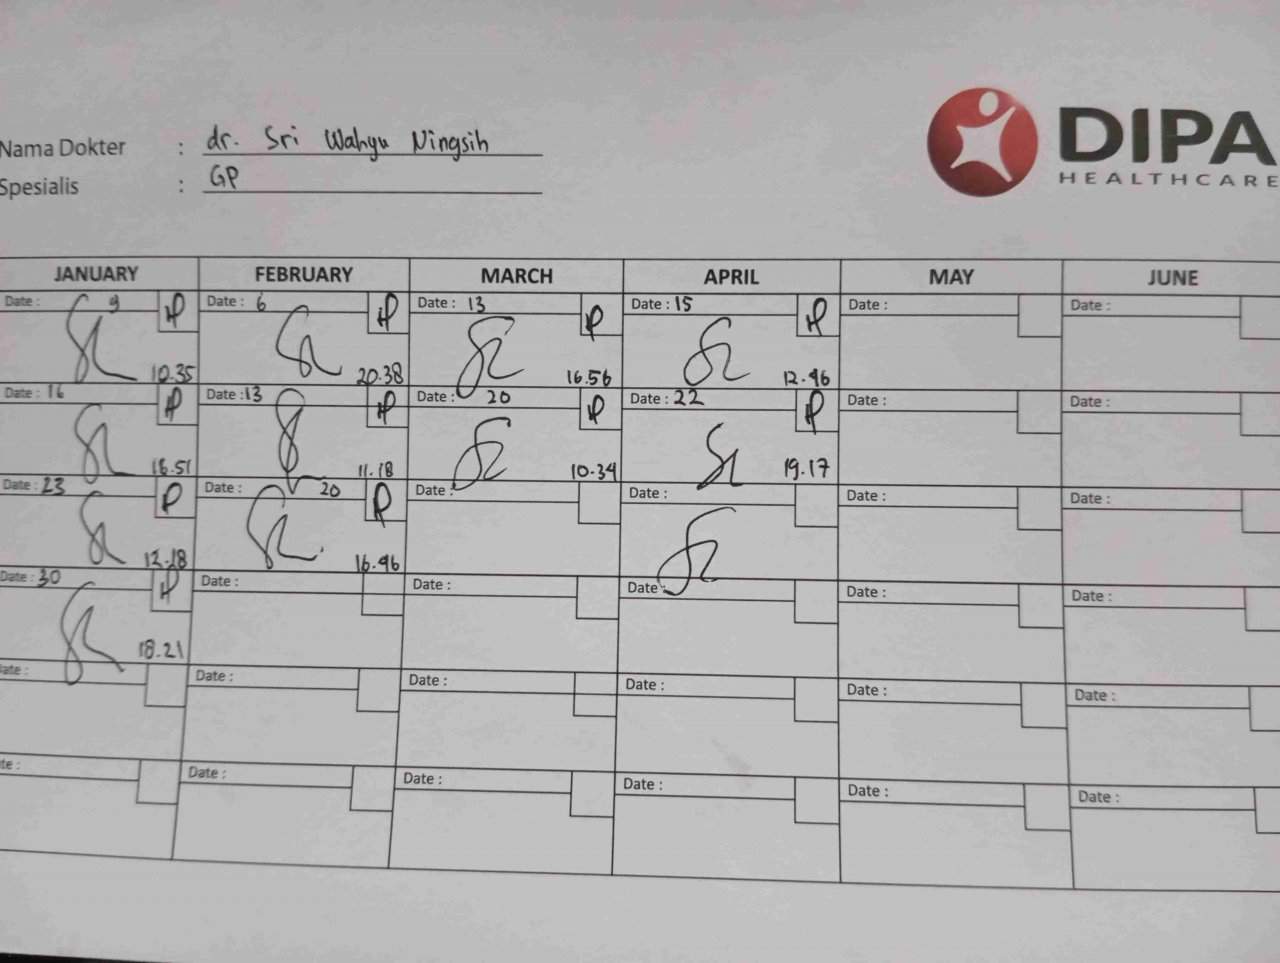 DIPA
HEALTHCARE
Nama Dokter : dr. Sri Wahyu Ningsih
Spesialis : GP
JANUARY FEBRUARY MARCH APRIL MAY JUNE
Date : 9 Date : 6 Date : 13 Date : 15 Date : Date :
10.35 20.38 16.56 12.46
Date : 16 Date : 13 Date : 20 Date : 22 Date : Date :
16.51 11.18 10.34 19.17
Date : 23 Date : 20 Date : Date : Date : Date :
12.18 16.46
Date : 30 Date : Date : Date : Date : Date :
18.21
ate : Date : Date : Date : Date : Date :
te : Date : Date : Date : Date : Date :